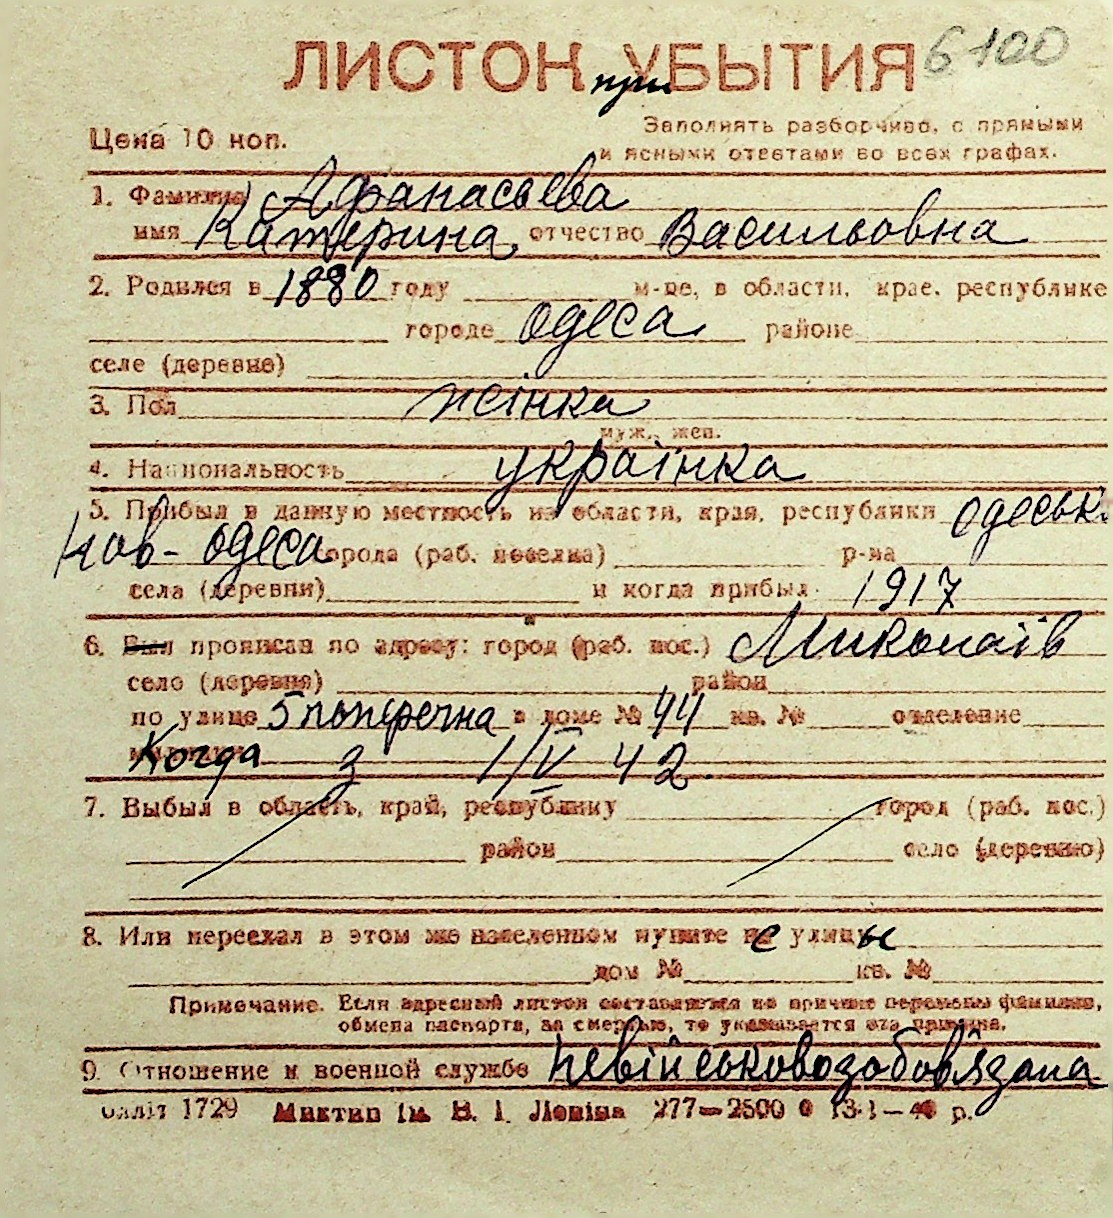 ЛИСТОК при УБЫТИЯ 6100
Цена 10 коп.
Заполнять разборчиво, с прямыми
и ясными ответами во всех графах.
1. Фамилия Афанасьева
имя Катерина, отчество Васильовна
2. Родился в 1880 году м-це, в области, крае, республике
городе Одеса районе
селе (деревне)
3. Пол жінка
муж., жен.
4. Национальность українка
5. Прибыл в данную местность из области, края, республики Одеськ.
Нов-Одеса города (раб. поселка) р-на
села (деревни) и когда прибыл 1917
6. Был прописан по адресу: город (раб. пос.) Миколаїв
село (деревня) район
по улице 5 поперечна в доме № 44 кв. № отделение
Когда з 1/V 42.
7. Выбыл в область, край, республику город (раб. пос.)
район село (деревню)
8. Или переехал в этом же населенном пункте с улицы
дом № кв. №
Примечание. Если адресный листок составляется по причине перемены фамилии,
обмена паспорта, за смертью, то указывается эта причина.
9. Отношение к военной службе невійськовозобов'язана
Облліт 1729 Миктип ім. В. І. Леніна 277—2500 13-І— р.